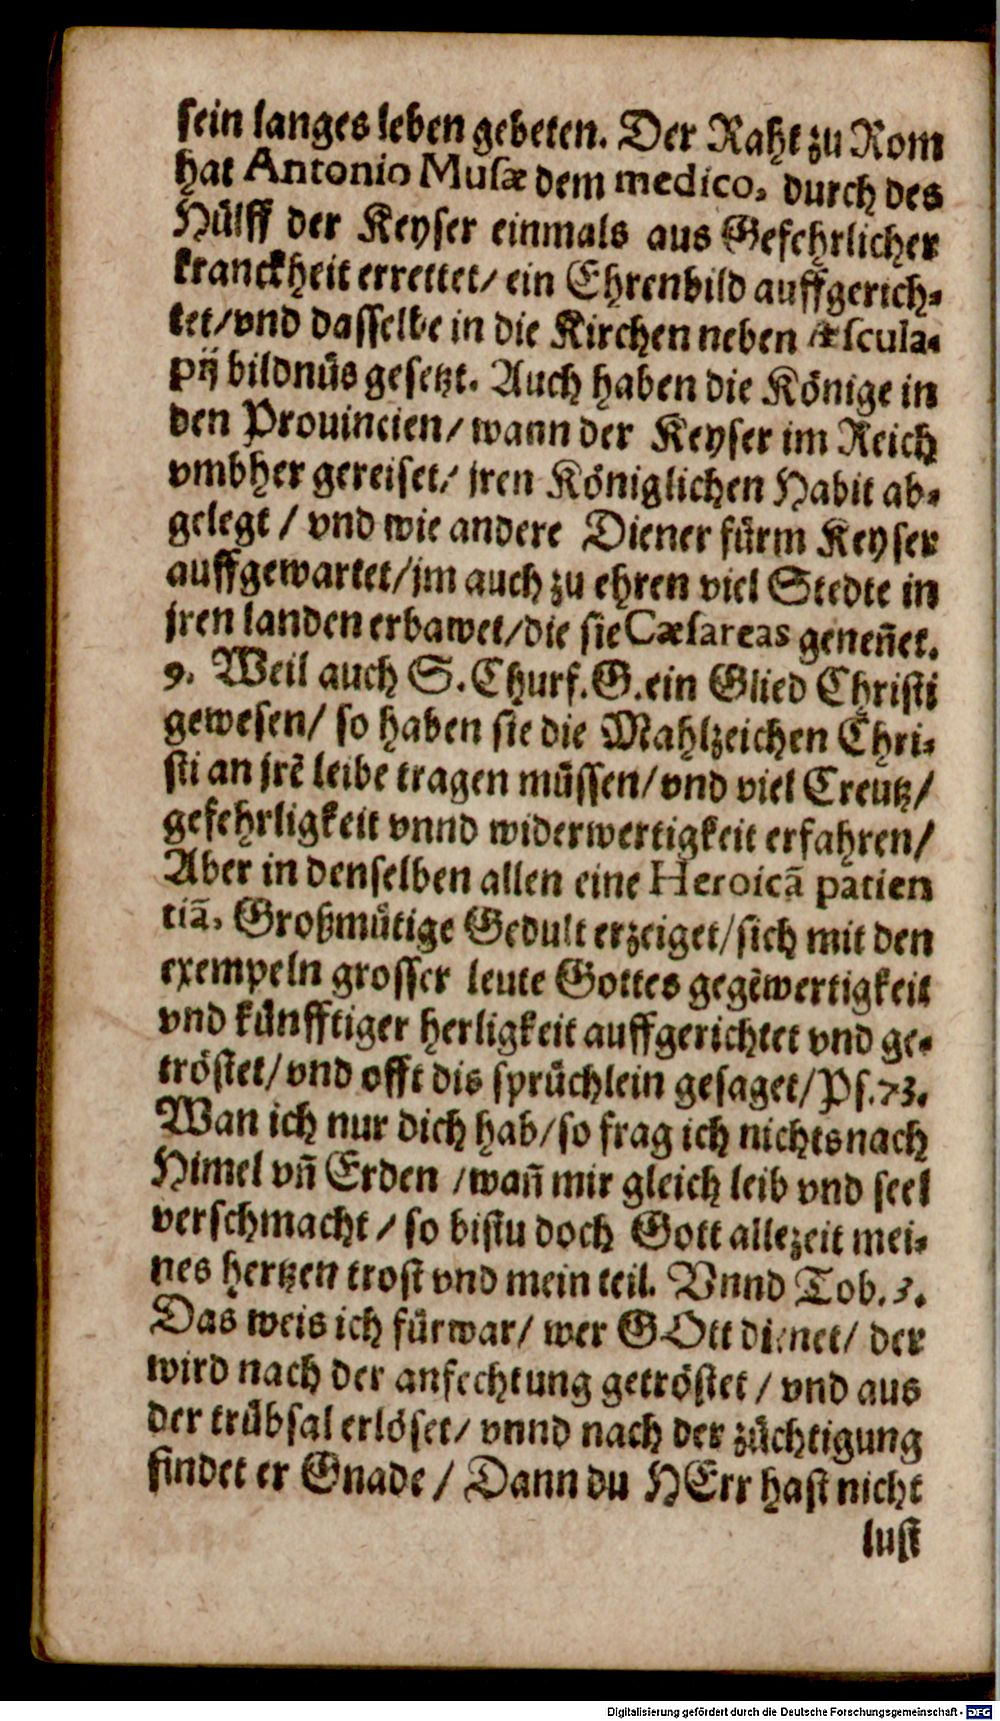 sein langes leben gebeten. Der Raht zu Rom
hat Antonio Musæ dem medico, durch des
Hülff der Keyser einmals aus Gefehrlicher
kranckheit errettet/ ein Ehrenbild auffgerich-
tet/ vnd dasselbe in die Kirchen neben Æscula-
pij bildnüs gesetzt. Auch haben die Könige in
den Prouincien/ wann der Keyser im Reich
vmbher gereiset/ jren Königlichen Habit ab-
gelegt / vnd wie andere Diener fürm Keyser
auffgewartet/ jm auch zu ehren viel Stedte in
jren landen erbawet/ die sie Cæsareas geneñet.
9. Weil auch S. Churf. G. ein Glied Christi
gewesen/ so haben sie die Mahlzeichen Chri-
sti an jrē leibe tragen müssen/ vnd viel Creutz/
gefehrligkeit vnnd widerwertigkeit erfahren/
Aber in denselben allen eine Heroicā patien
tiā, Großmütige Gedult erzeiget/ sich mit den
exempeln grosser leute Gottes gegēwertigkeit
vnd künfftiger herligkeit auffgerichtet vnd ge-
tröstet/ vnd offt dis sprüchlein gesaget/ Ps. 73.
Wan ich nur dich hab/ so frag ich nichts nach
Himel vñ Erden / wañ mir gleich leib vnd seel
verschmacht / so bistu doch Gott allezeit mei-
nes hertzen trost vnd mein teil. Vnnd Tob. 3.
Das weis ich fürwar/ wer GOtt dienet/ der
wird nach der anfechtung getröstet / vnd aus
der trübsal erlöset/ vnnd nach der züchtigung
findet er Gnade / Dann du HErr hast nicht
lust
Digitalisierung gefördert durch die Deutsche Forschungsgemeinschaft - DFG